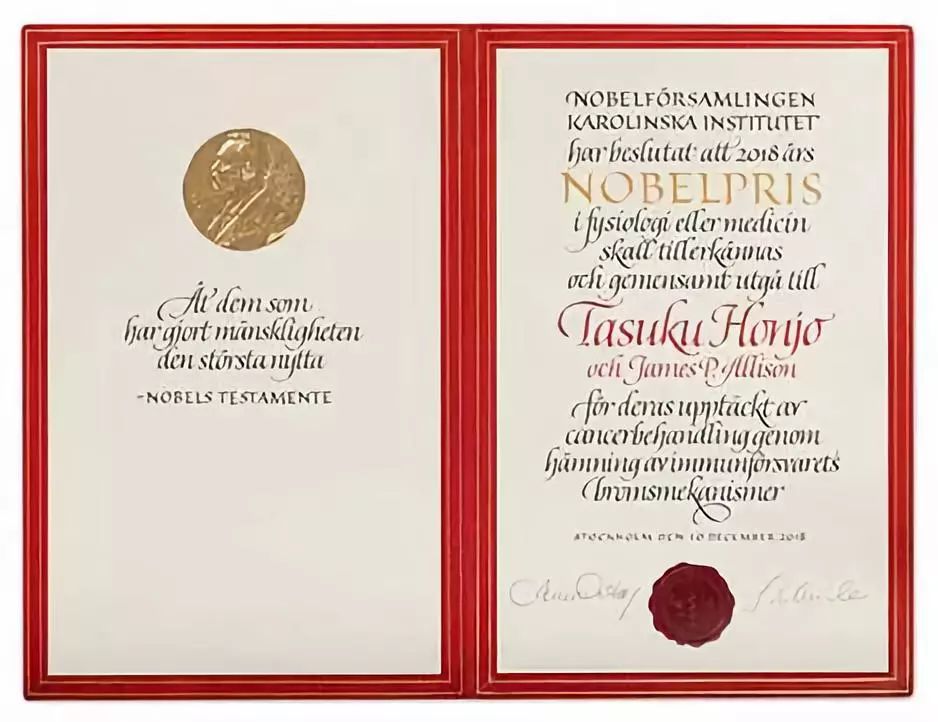 Åt dem som
har gjort mänskligheten
den största nytta
-NOBELS TESTAMENTE
NOBELFÖRSAMLINGEN
KAROLINSKA INSTITUTET
har beslutat att 2018 års
NOBELPRIS
i fysiologi eller medicin
skall tillerkännas
och gemensamt utgå till
Tasuku Honjo
och James P. Allison
för deras upptäckt av
cancerbehandling genom
hämning av immunförsvarets
bromsmekanismer
STOCKHOLM DEN 10 DECEMBER 2018